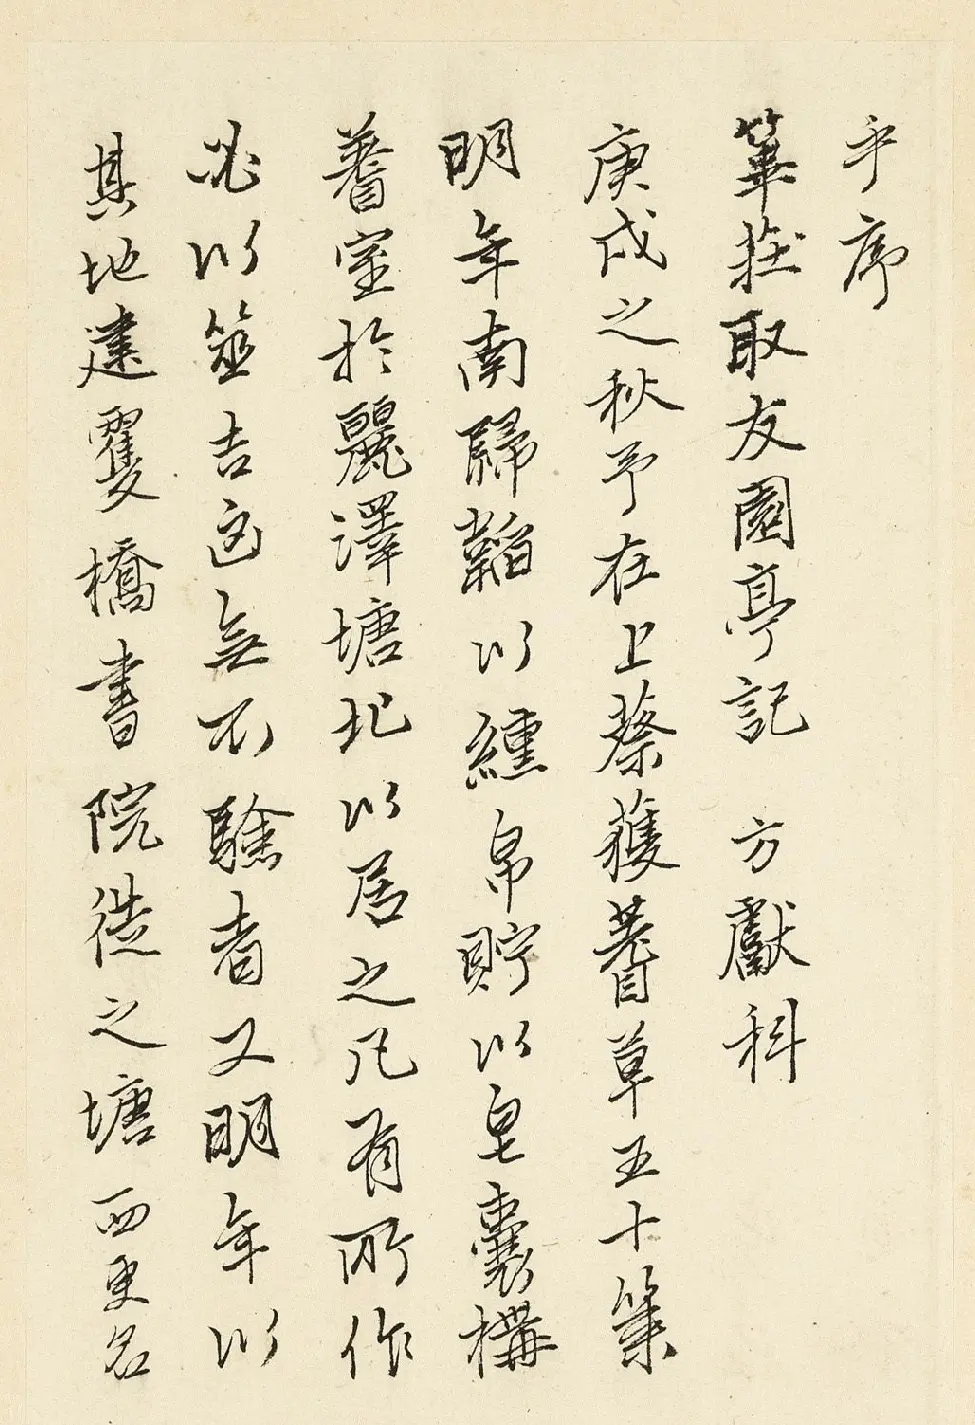 乎序
篳莊取友園亭記 方獻科
庚戌之秋予在上蔡獲蓍草五十策
明年南歸韜以纁帛貯以皂囊構
蓍室於麗澤塘北以居之凡有所作
必以筮吉凶無不驗者又明年以
其地建矍橋書院徙之塘西更名